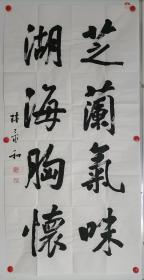 芝蘭氣味
湖海胸懷